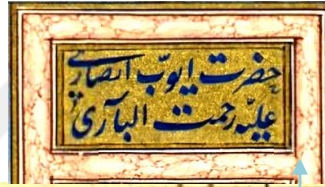 حضرت ایوب انصاری
علیه رحمت الباری